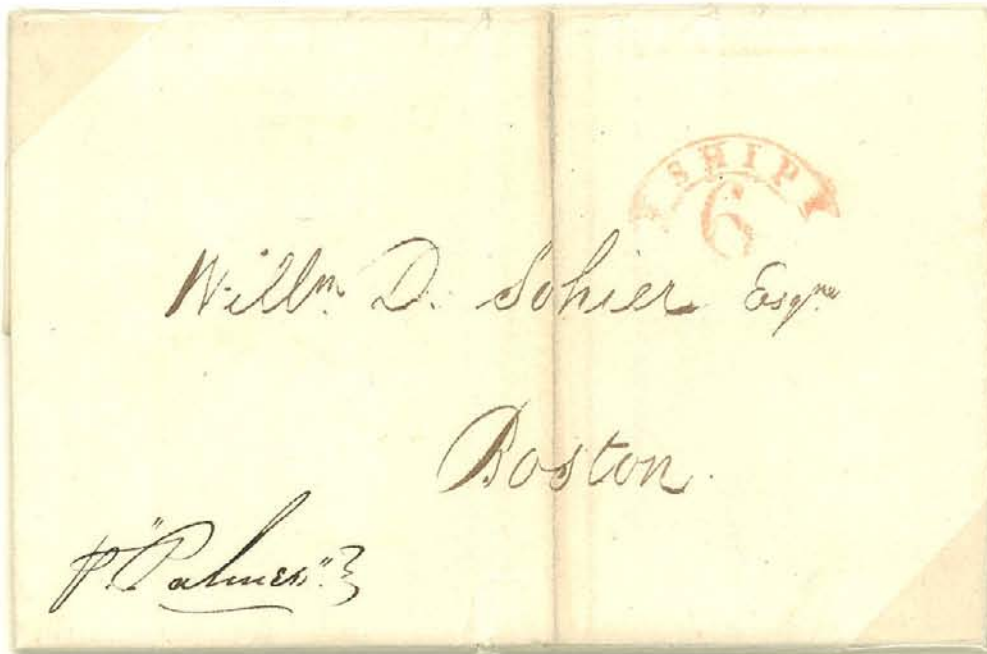 SHIP
6
Willm. D. Sohier Esqre
Boston.
pr. "Palmer"